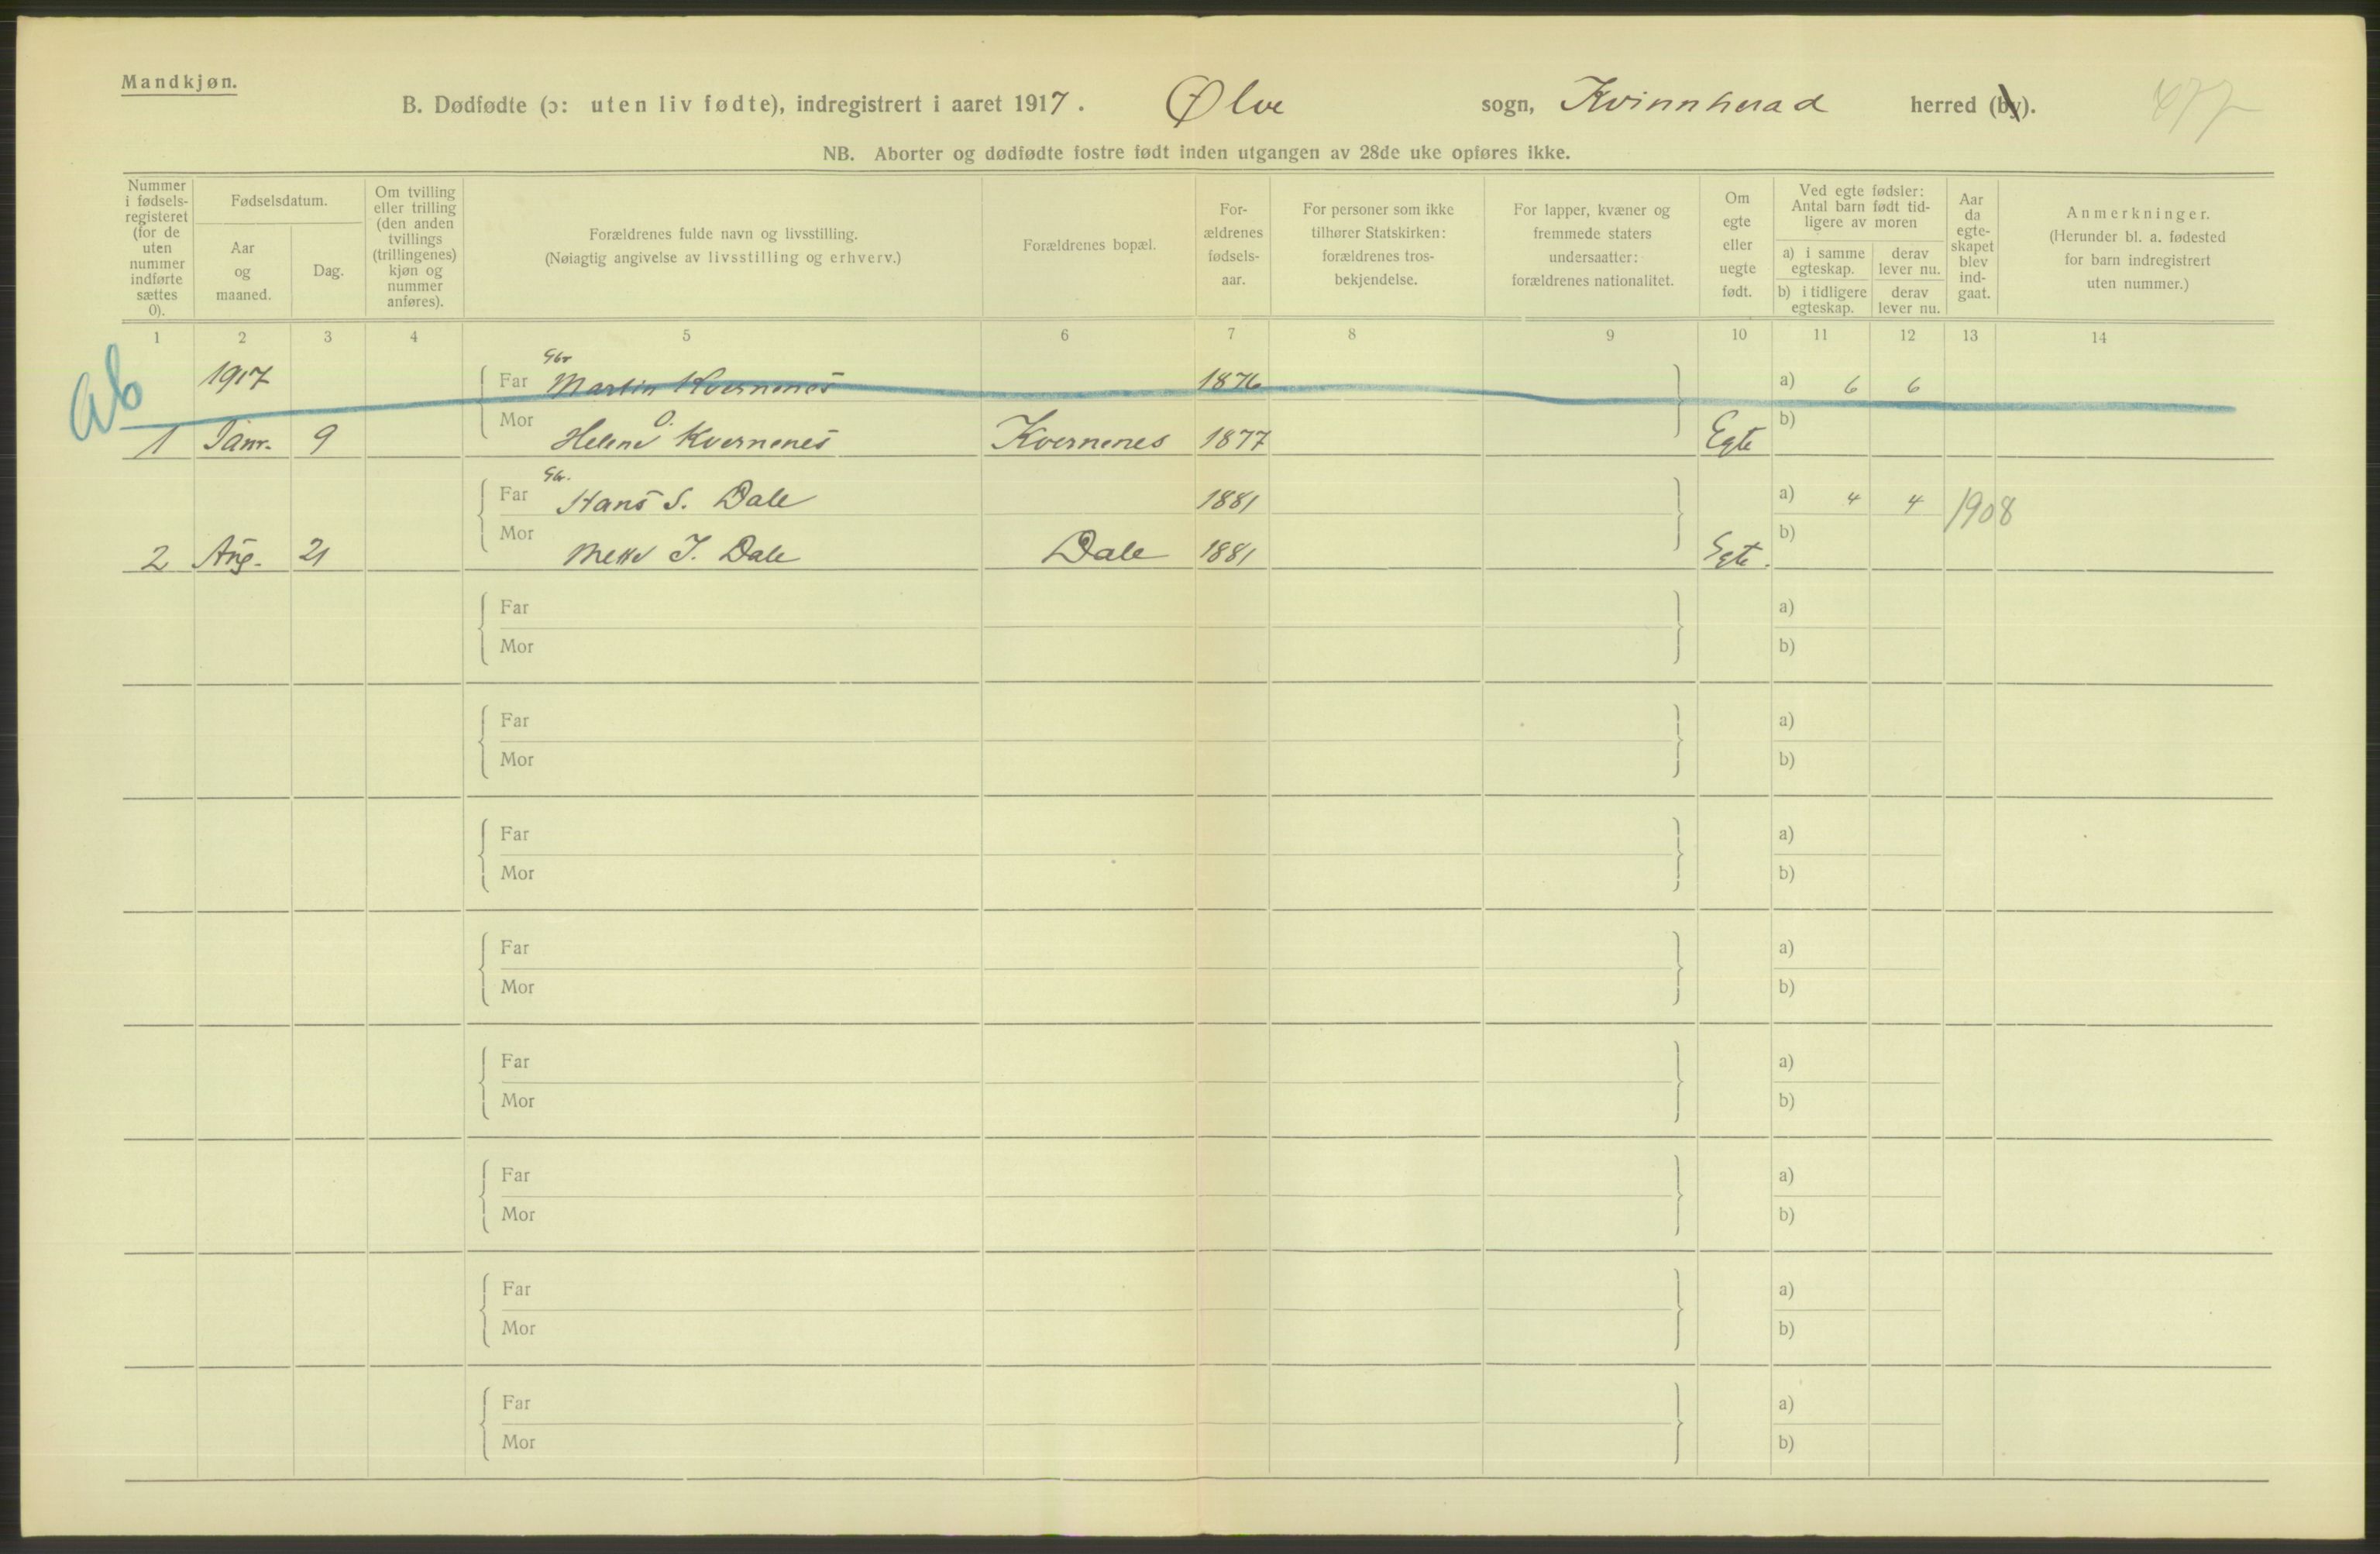 Mandkjøn.
B. Dødfødte (ɔ: uten liv fødte), indregistrert i aaret 1917. Ølve sogn, Kvinnherad herred (by).
NB. Aborter og dødfødte fostre født inden utgangen av 28de uke opføres ikke.
Nummer i fødsels-registeret (for de uten nummer indførte sættes 0).
Fødselsdatum.
Aar og maaned.
Dag.
Om tvilling eller trilling (den anden tvillings (trillingenes) kjøn og nummer anføres).
Forældrenes fulde navn og livsstilling.
(Nøiagtig angivelse av livsstilling og erhverv.)
Forældrenes bopæl.
For-ældrenes fødsels-aar.
For personer som ikke tilhører Statskirken: forældrenes tros-bekjendelse.
For lapper, kvæner og fremmede staters undersaatter: forældrenes nationalitet.
Om egte eller uegte født.
Ved egte fødsler: Antal barn født tid-ligere av moren
a) i samme egteskap.
derav lever nu.
b) i tidligere egteskap.
derav lever nu.
Aar da egte-skapet blev ind-gaat.
Anmerkninger.
(Herunder bl. a. fødested for barn indregistrert uten nummer.)
1 2 3 4 5 6 7 8 9 10 11 12 13 14
Ab
1917 Far Gbr Martin Kvernenes 1876 a) 6 6
1 Janr. 9 Mor Helene O. Kvernenes Kvernenes 1877 Egte b)
Far Gbr. Hans S. Dale 1881 a) 4 4 1908
2 Aug. 21 Mor Mette J. Dale Dale 1881 Egte. b)
Far a)
Mor b)
Far a)
Mor b)
Far a)
Mor b)
Far a)
Mor b)
Far a)
Mor b)
Far a)
Mor b)
Far a)
Mor b)
Far a)
Mor b)